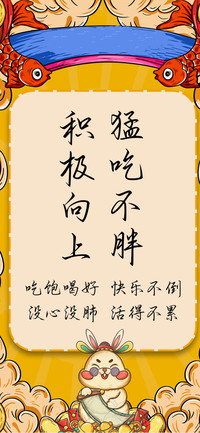 猛吃不胖
积极向上
吃饱喝好 快乐不倒
没心没肺 活得不累